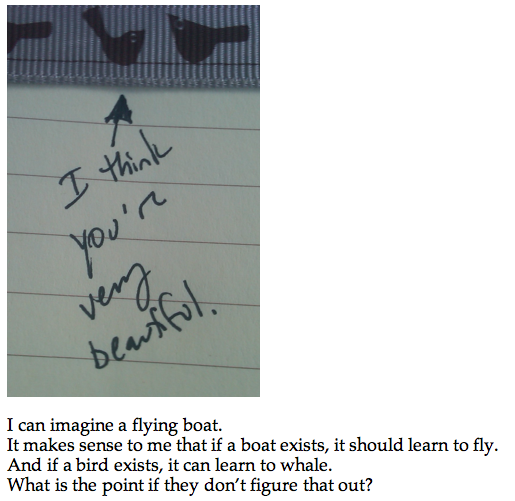 I think
you're
very
beautiful.
I can imagine a flying boat.
It makes sense to me that if a boat exists, it should learn to fly.
And if a bird exists, it can learn to whale.
What is the point if they don't figure that out?